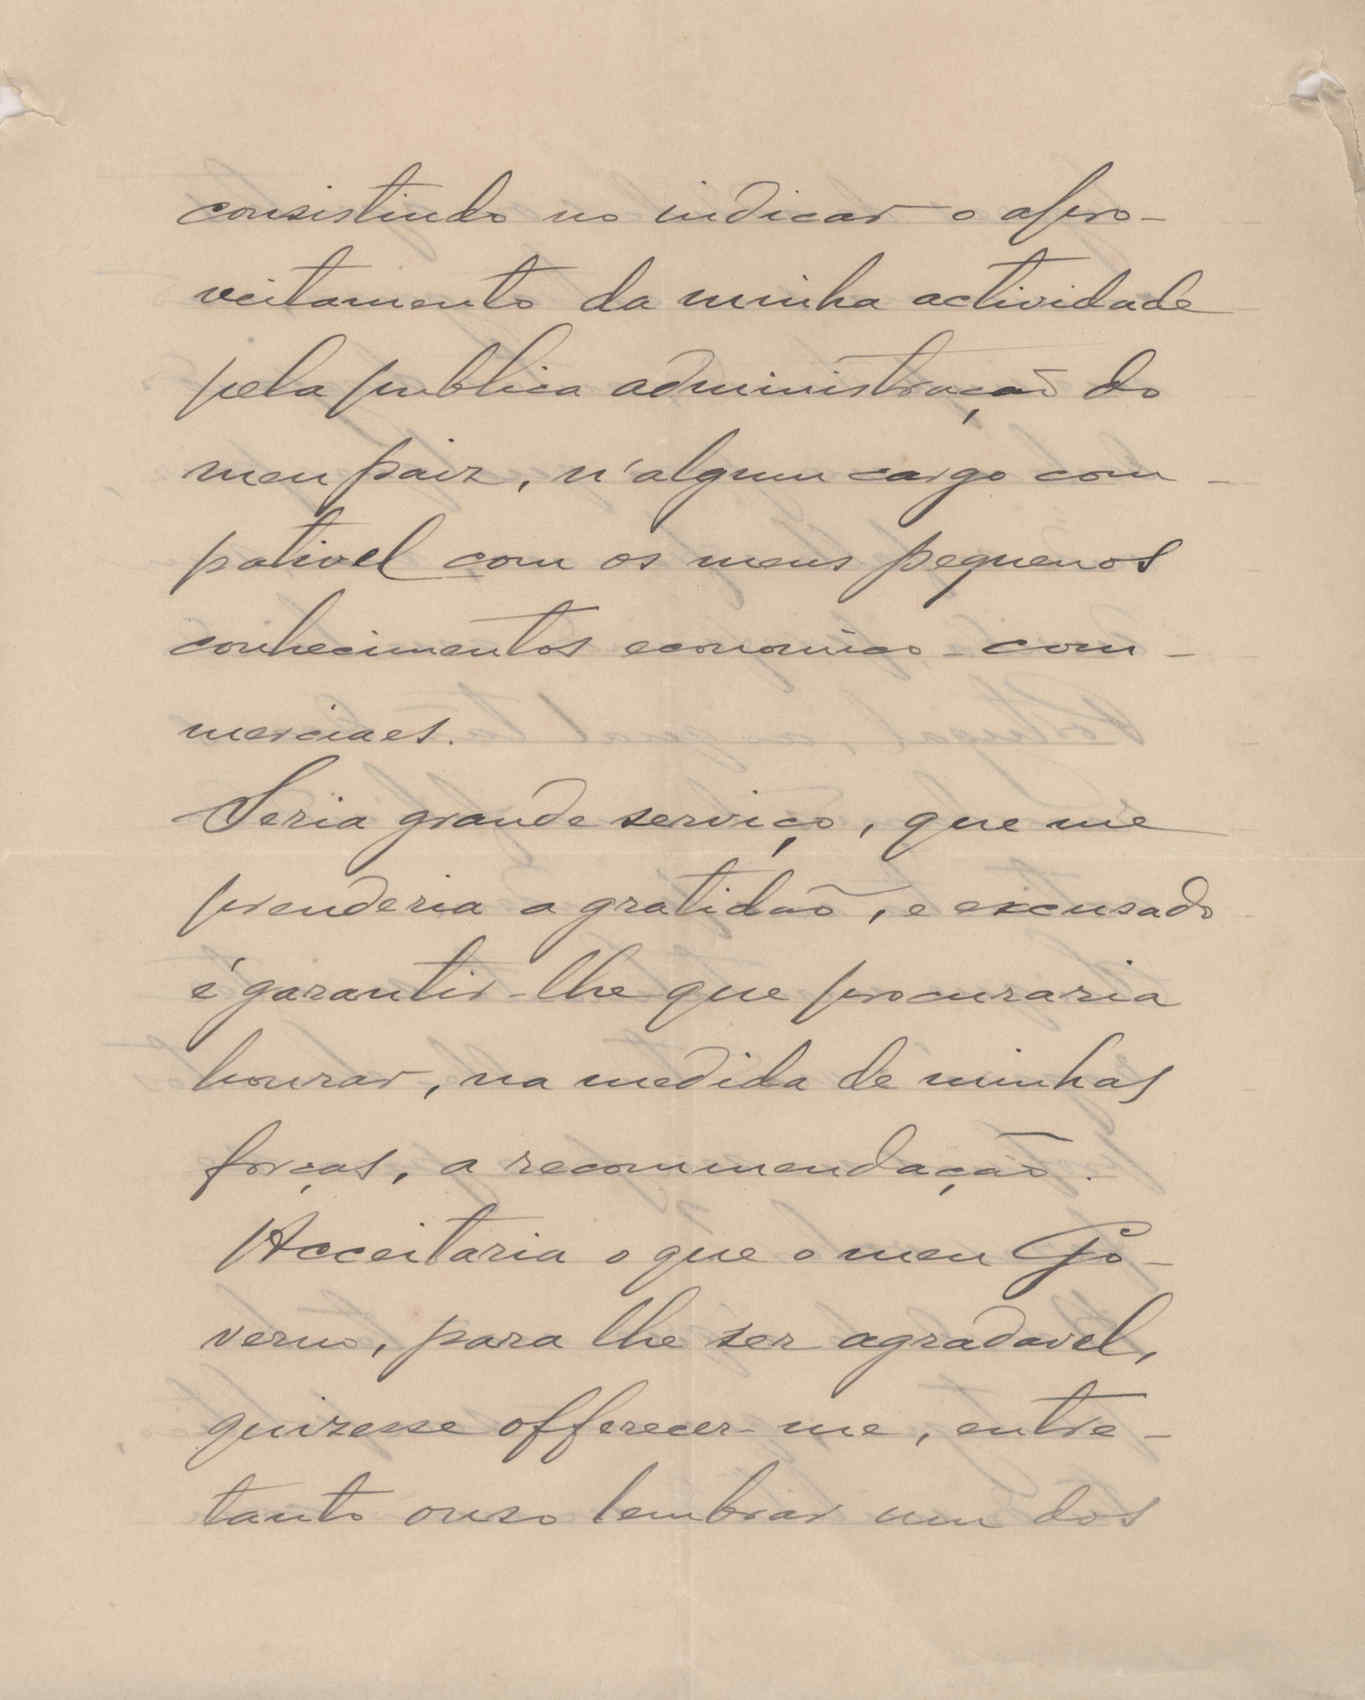 consistindo no indicar o apro-
veitamento da minha actividade
pela publica administração do
meu paiz, n'algum cargo com-
pativel com os meus pequenos
conhecimentos economico-com-
merciaes.
Seria grande serviço, que me
prenderia a gratidão, e excusado
é garantir-lhe que procuraria
honrar, na medida de minhas
forças, a recommendação.
Acceitaria o que o meu Go-
verno, para lhe ser agradavel,
quizesse offerecer-me, entre-
tanto ouso lembrar um dos